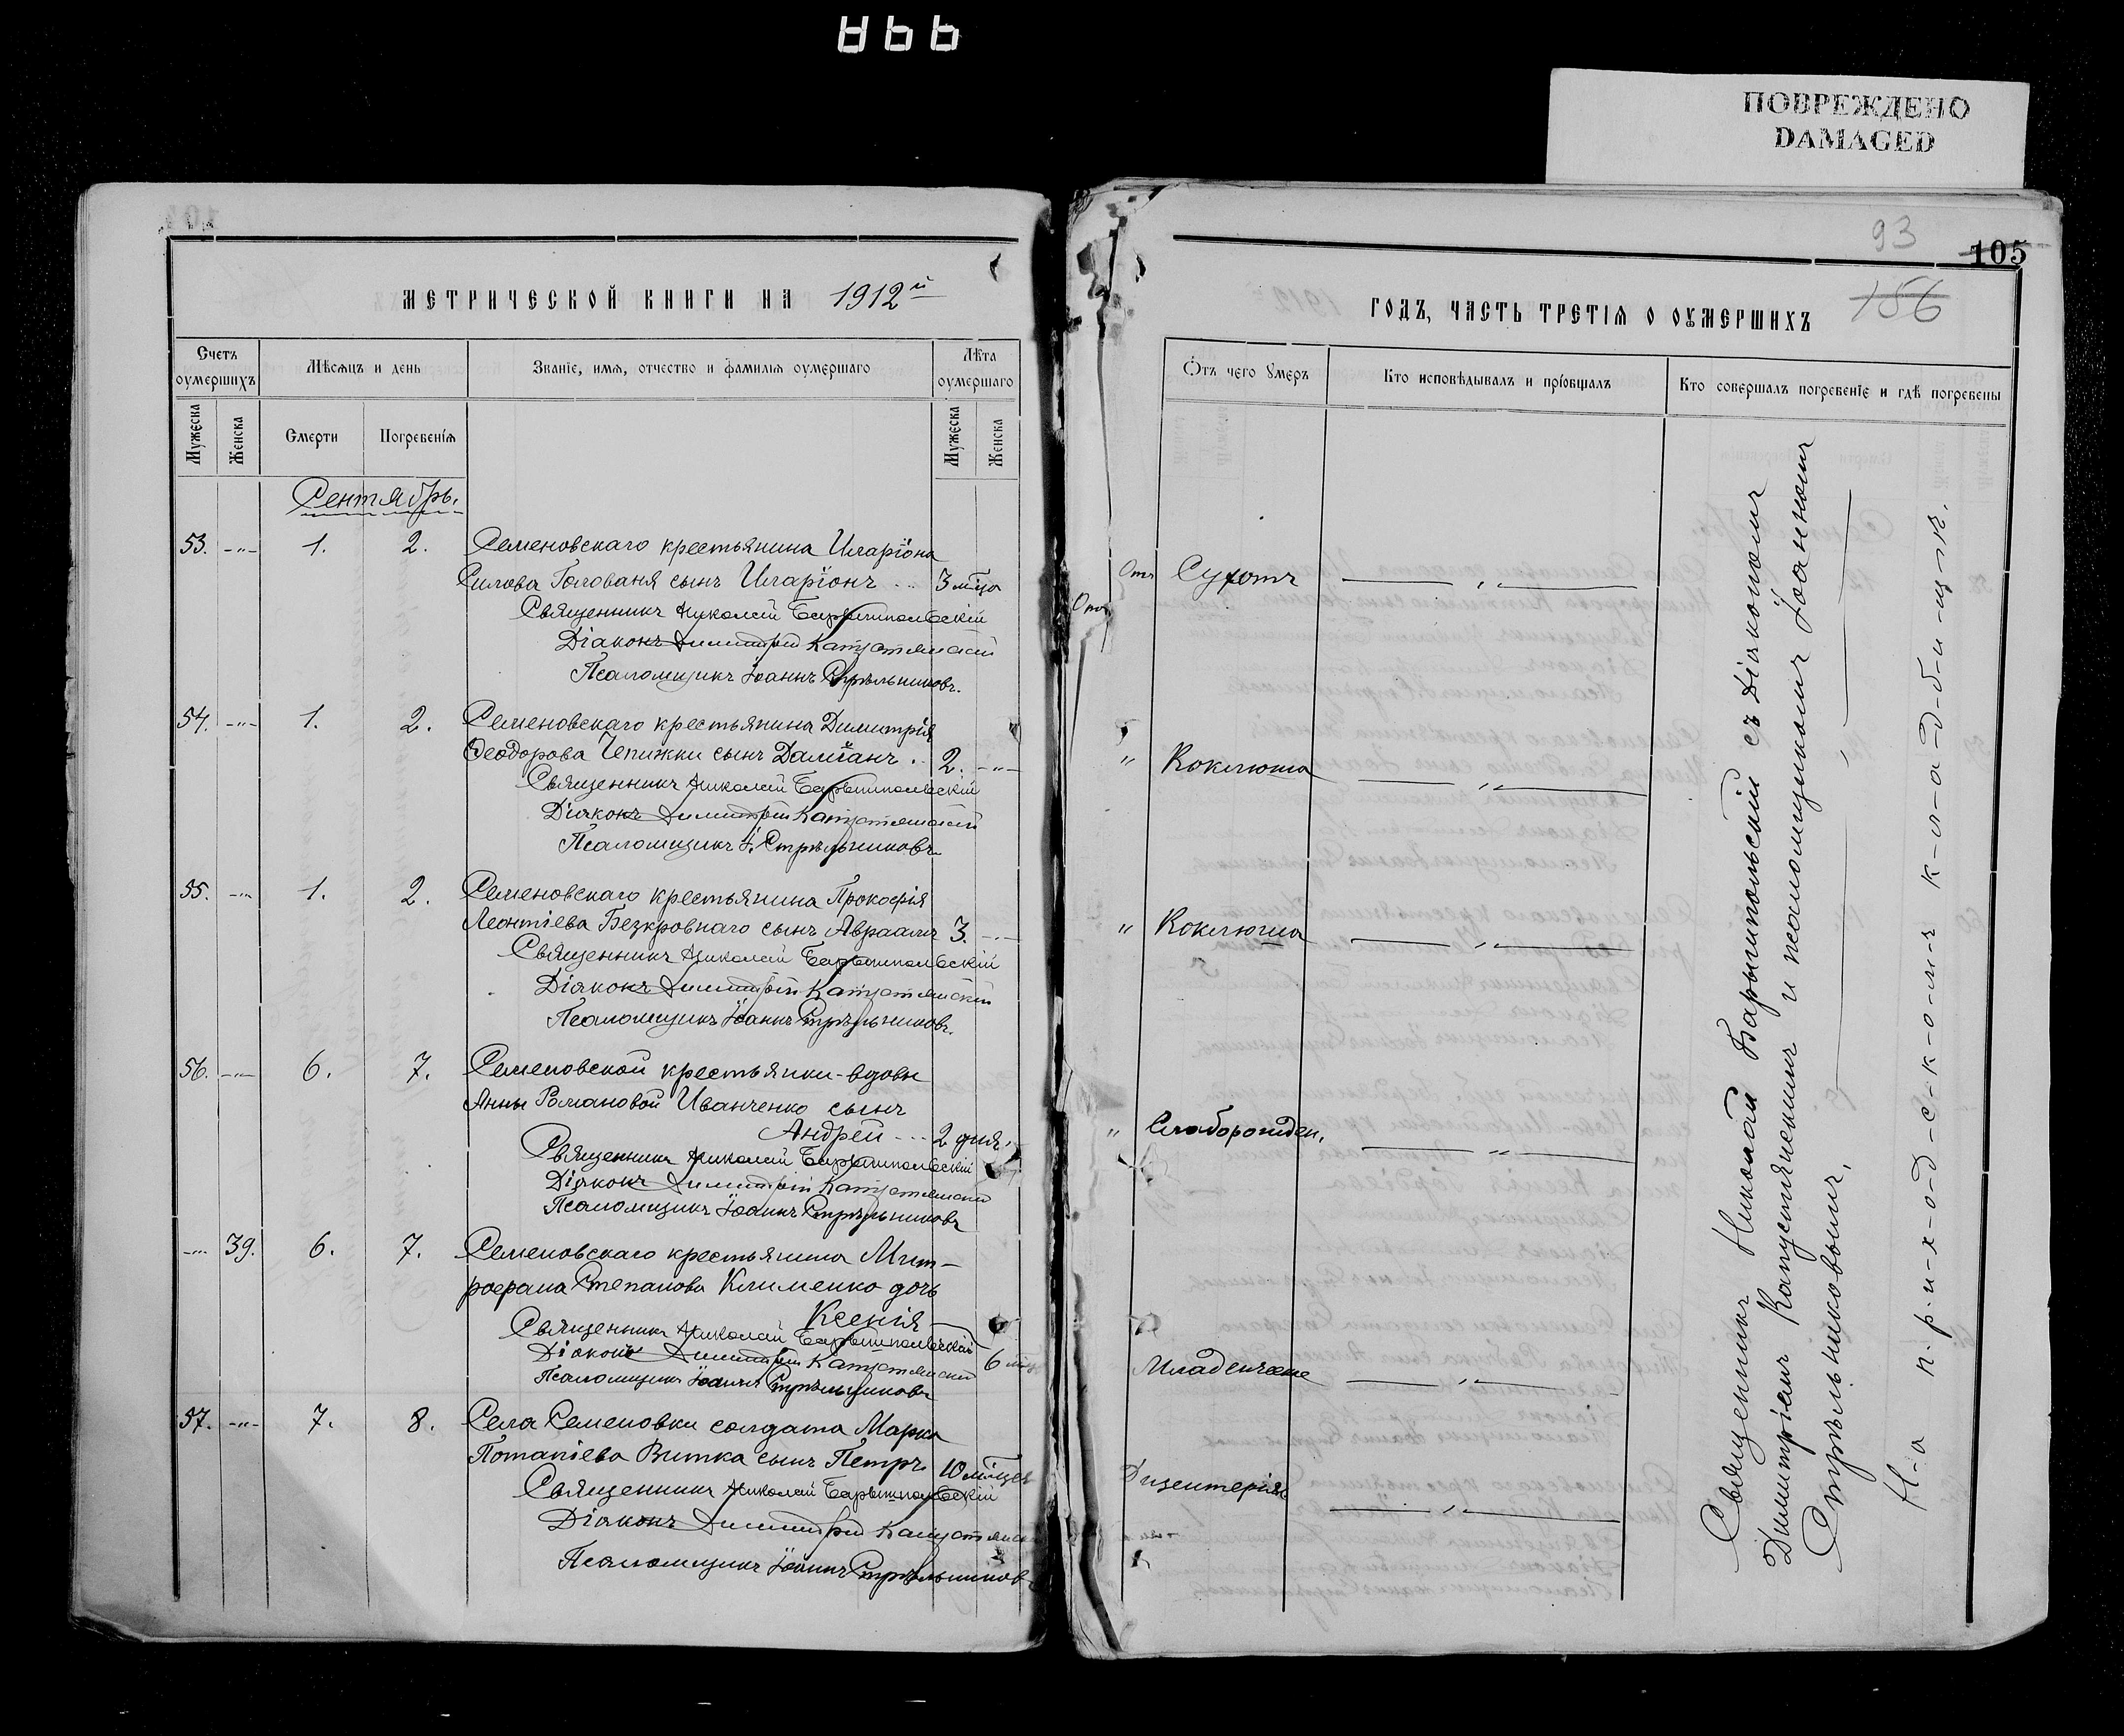 ПОВРЕЖДЕНО
DAMAGED
МЕТРИЧЕСКОЙ КНИГИ НА 1912й
Счетъ оумершихъ
Мѣсяцъ и день
Званіе, имя, отчество и фамилія оумершаго
Лѣта оумершаго
Мужеска
Женска
Смерти
Погребенія
Мужеска
Женска
Сентябрь.
53. -"- 1. 2. Семеновскаго крестьянина Иларіона
Силова Голованя сынъ Иларіонъ .. 3 мѣца
Священникъ Николай Барышпольскій
Діаконъ Димитрій Капустянскій
Псаломщикъ Іоаннъ Стрѣльниковъ.
54. -"- 1. 2. Семеновскаго крестьянина Димитрія
Ѳеодорова Чепижки сынъ Даміанъ .. 2. -"-
Священникъ Николай Барышпольскій
Діаконъ Димитрій Капустянскій
Псаломщикъ І. Стрѣльниковъ
55. -"- 1. 2. Семеновскаго крестьянина Прокофія
Леонтіева Безкровнаго сынъ Авраамъ 3. -"-
Священникъ Николай Барышпольскій
Діаконъ Димитрій Капустянскій
Псаломщикъ Іоаннъ Стрѣльниковъ.
56. -"- 6. 7. Семеновской крестьянки-вдовы
Анны Романовой Иванченко сынъ
Андрей --- 2 дня.
Священникъ Николай Барышпольскій
Діаконъ Димитрій Капустянскій
Псаломщикъ Іоаннъ Стрѣльниковъ
-"- 39. 6. 7. Семеновскаго крестьянина Мит-
рофана Степанова Клименко дочь
Ксенія
Священникъ Николай Барышпольскій
Діаконъ Димитрій Капустянскій 6
Псаломщикъ Іоаннъ Стрѣльниковъ
57. -"- 7. 8. Села Семеновки солдата Марка
Потапіева Витка сынъ Петръ 10 мѣцев
Священникъ Николай Барышпольскій
Діаконъ Димитрій Капустянскій
Псаломщикъ Іоаннъ Стрѣльниковъ
93
105
156
ГОДЪ, ЧАСТЬ ТРЕТІЯ О ОУМЕРШИХЪ
Ѿтъ чего оумеръ
Кто исповѣдывалъ и пріобщалъ
Кто совершалъ погребеніе и гдѣ погребены
Отъ Сухотъ — " —
Отъ
" Коклюша — " —
" Коклюша — " —
" Слаборожден. — " —
Младенческ — " —
Дизентеріи — " —
Священникъ Николай Барышпольскій съ Діакономъ
Димитріемъ Капустянскимъ и псаломщикомъ Іоанномъ
Стрѣльниковымъ. — " —
Н-а п-р-и-х-о-д-с-к-о-м-ъ к-л-а-д-б-и-щ-ѣ.